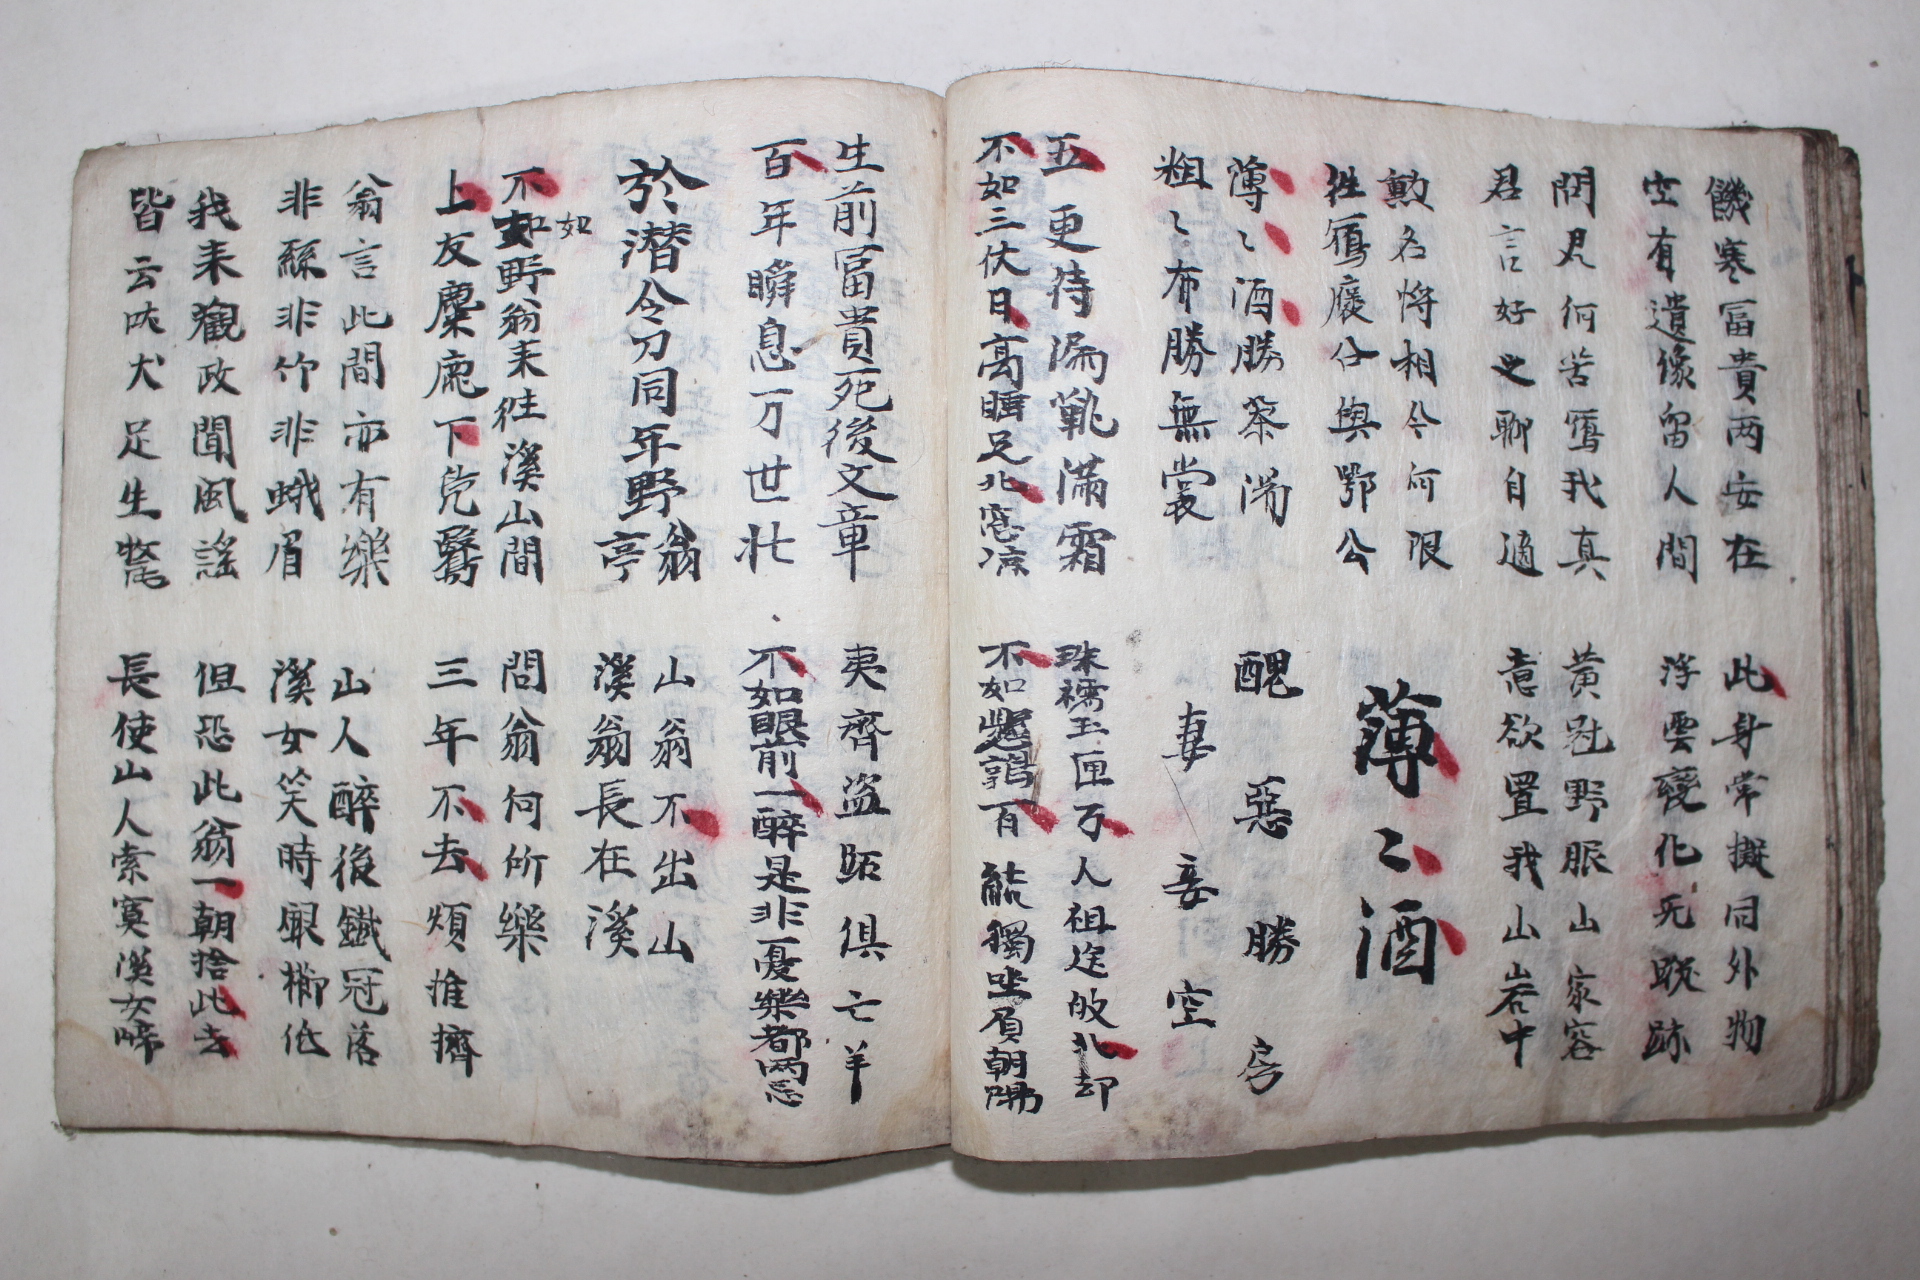 饑寒冨貴两安在
空有遺像留人間
此身常擬同外物
浮雲變化无蹤跡
問君何苦寫我真
君言好之聊自適
黃冠野服山家容
意欲置我山岩中
勲名將相今何限
往寫褒公與鄂公
薄〻酒
薄〻酒勝茶湯
粗〻布勝無裳
醜惡勝房
妻妾空
五更待漏靴滿霜
不如三伏日高睡足北窓凉
珠襦玉匣万人祖送北却
不如懸鶉百結獨坐負朝陽
生前冨貴死後文章
百年瞬息万世忙
夷齊盗跖俱亡羊
不如眼前一醉是非憂樂都两忘
於潜令刀同年野翁亭
山翁不出山
溪翁長在溪
不如野翁来往溪山間
如
上友麋鹿下鳬鷖
問翁何所樂
三年不去煩推擠
翁言此間亦有樂
非絲非竹非蛾眉
山人醉後鐵冠落
溪女笑時銀櫛低
我来觀政聞風謠
皆云吠犬足生氂
但恐此翁一朝捨此去
長使山人索寞溪女啼